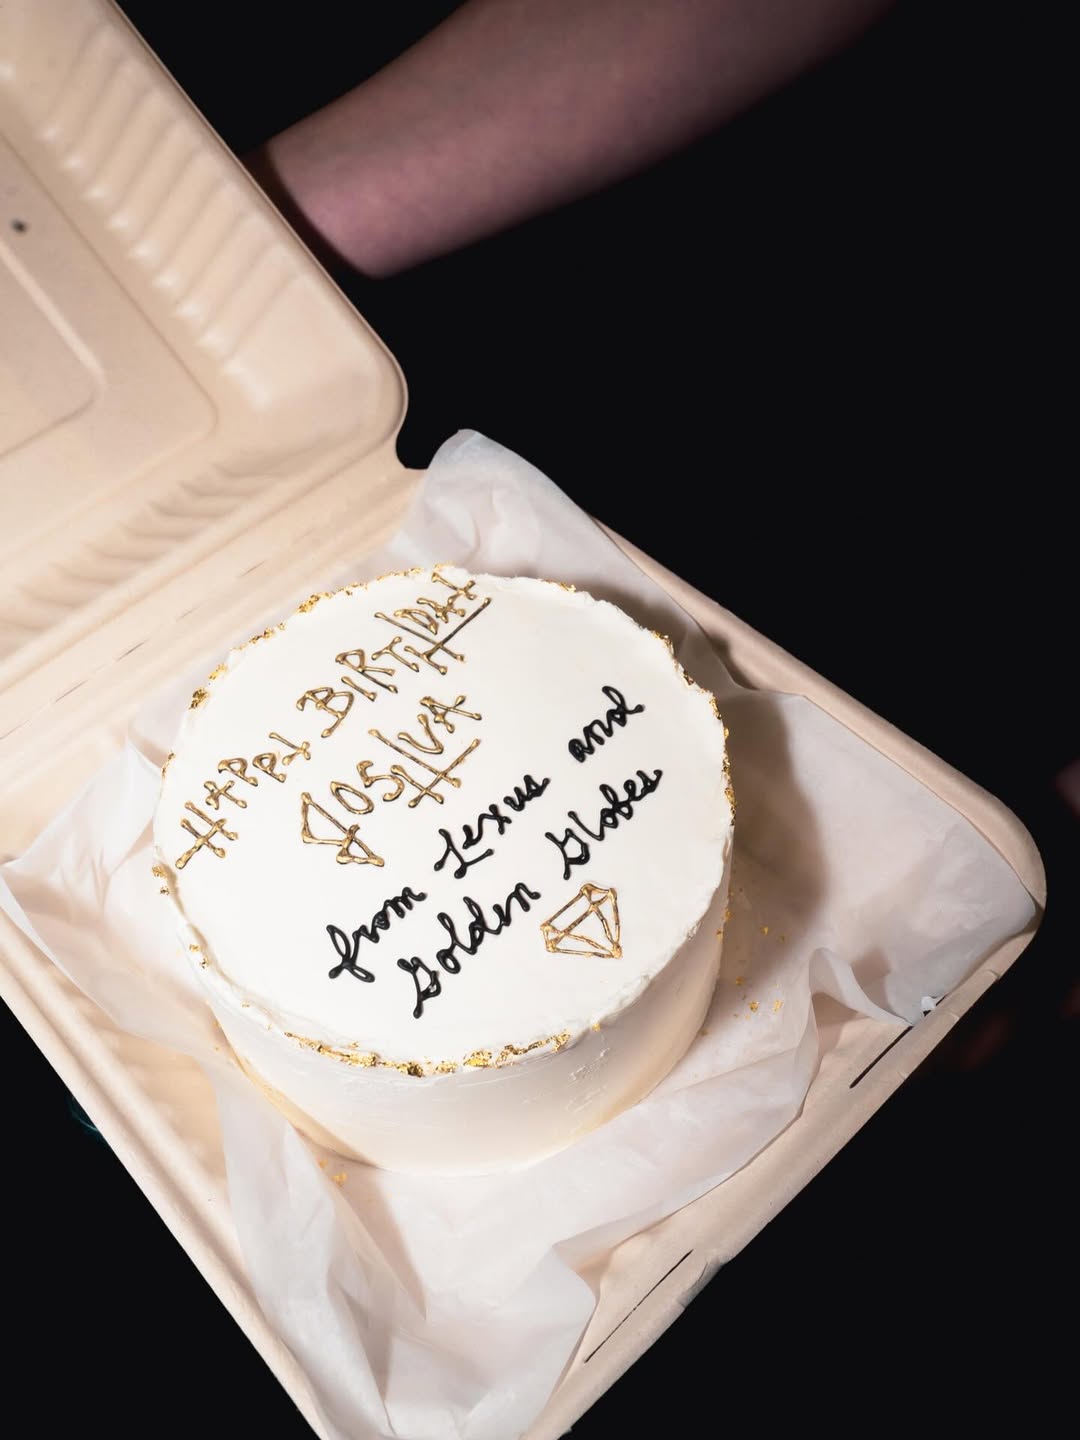 HAPPY BIRTHDAY
JOSHUA
from Lexus and
Golden Globes